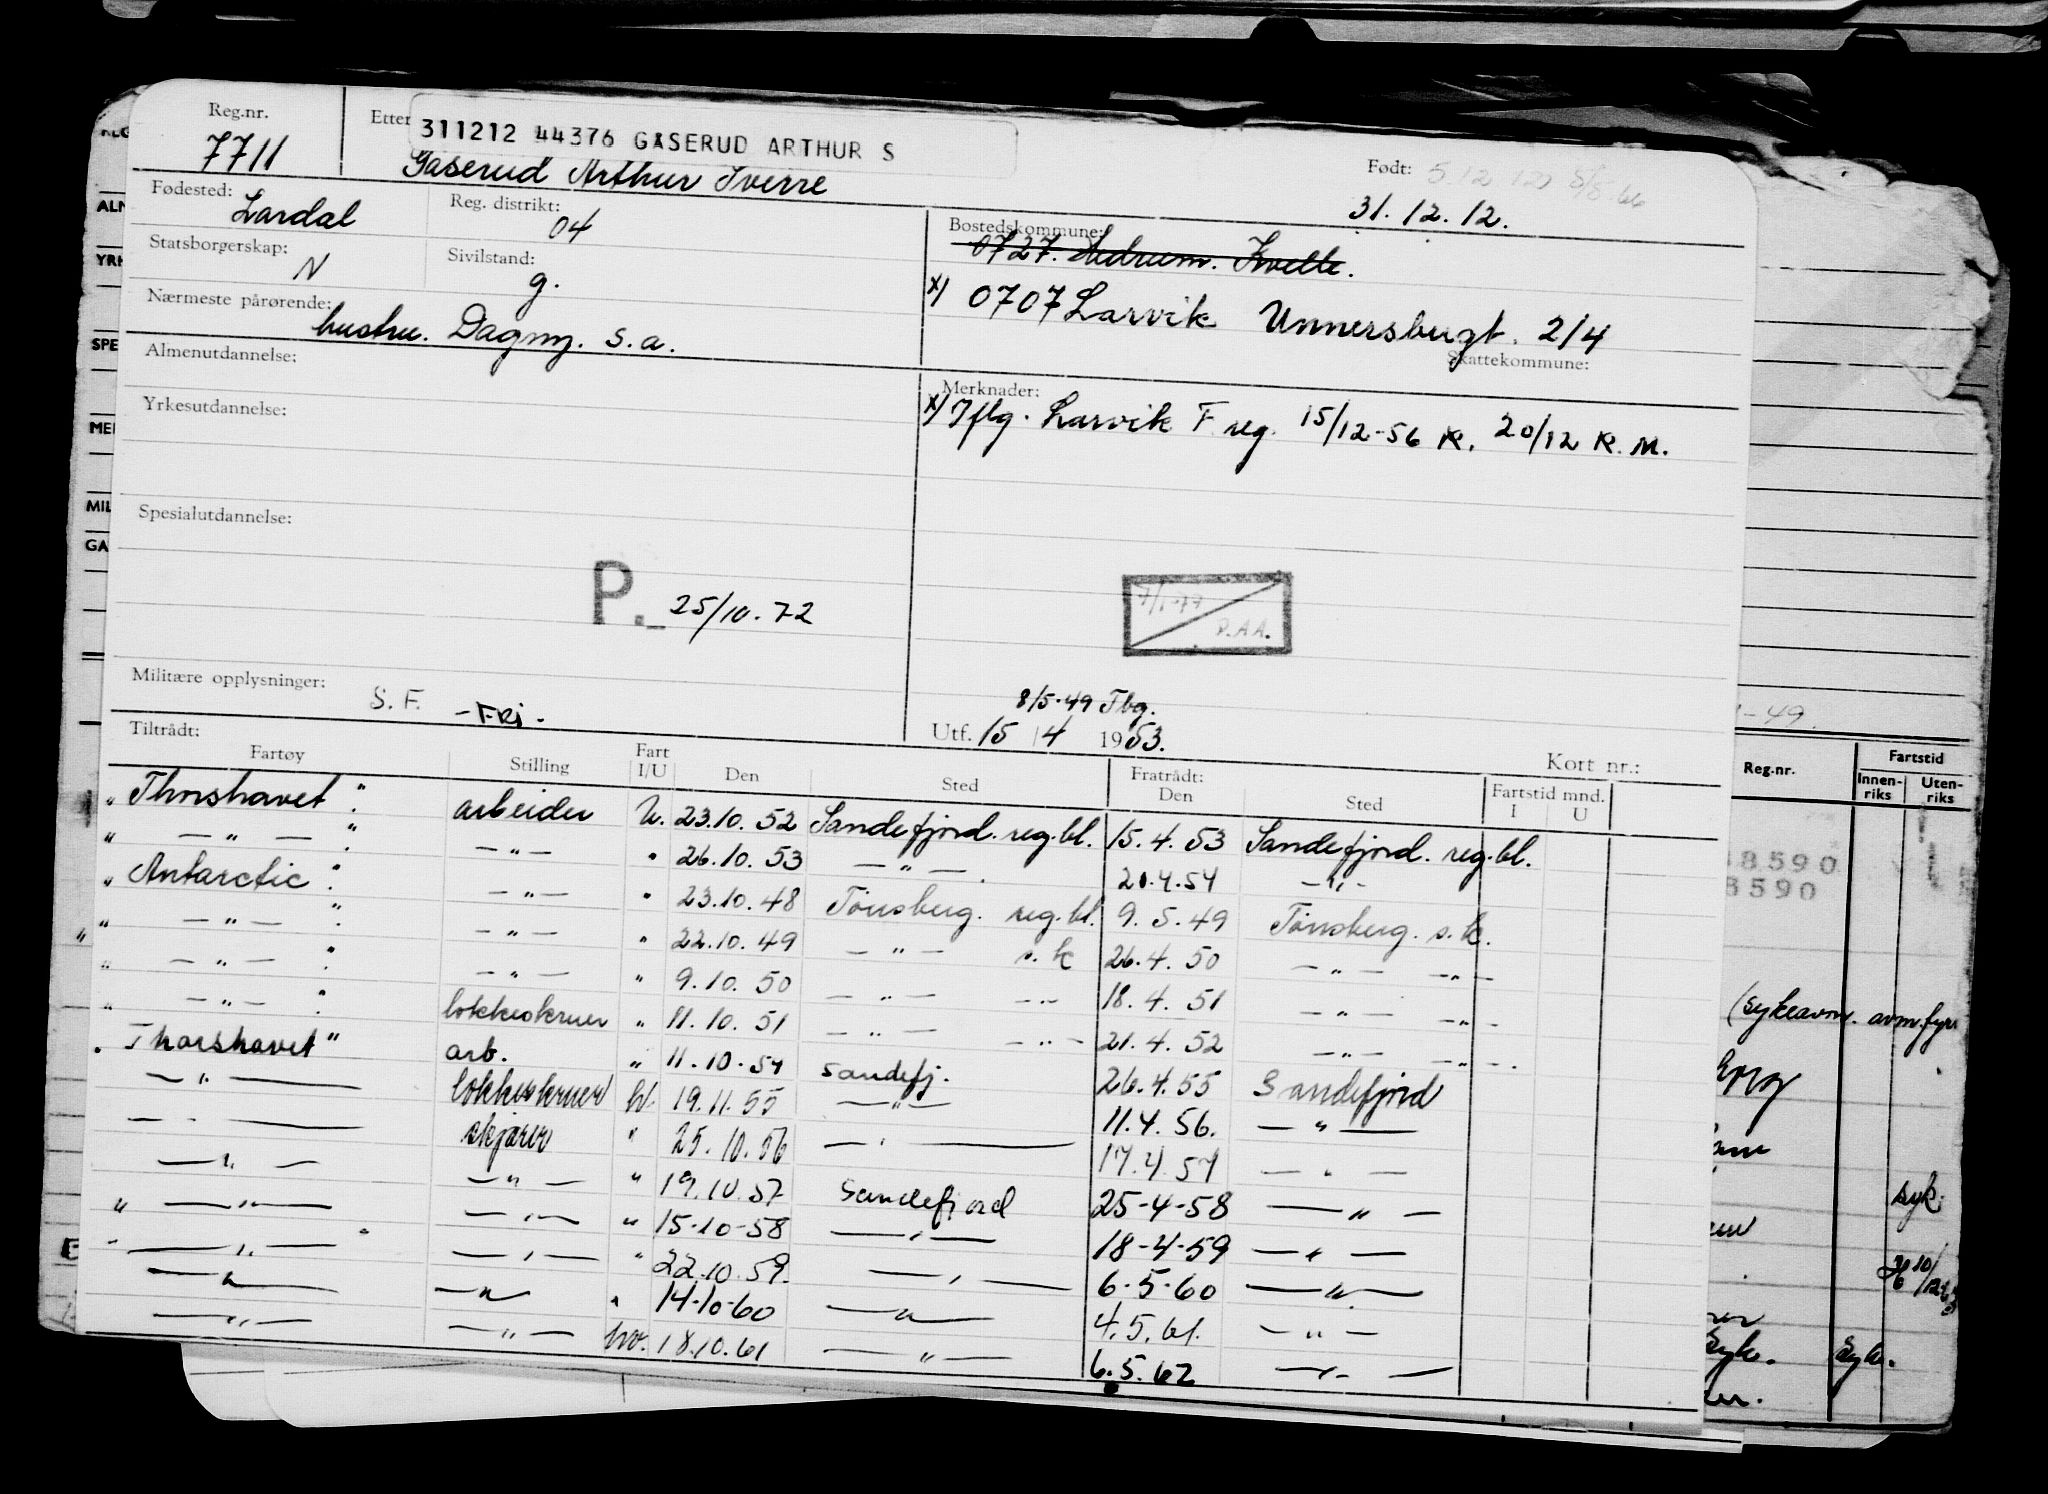 Reg.nr. 7711
Etter
311212 44376 GASERUD ARTHUR S
Gaserud Arthur Sverre
Født: 31.12.12.
Fødested: Lardal
Reg. distrikt: 04
Bostedskommune:
0727. Hedrum. Kvelle.
Statsborgerskap: N
Sivilstand: g.
x) 0707 Larvik Unnersbugt. 2/4
Nærmeste pårørende: hustru. Dagny. s.a.
Skattekommune:
Almenutdannelse:
Merknader:
x) Iflg. Larvik F. reg. 15/12-56 K. 20/12 K.M.
Yrkesutdannelse:
Spesialutdannelse:
P. 25/10.72
P.A.A.
Militære opplysninger: S.F. -FRi-
8/5-49 Tbg.
Utf. 15/4 1953.
Kort nr.:
Tiltrådt:
Fratrådt:
Fartøy Stilling Fart I/U Den Sted Den Sted Fartstid mnd. I U
" Thorshavet " arbeider U. 23.10.52 Sandefjord. reg.bl. 15.4.53 Sandefjord. reg.bl.
" — " — " — " — " 26.10.53 — " — . 21.4.54 — " —
" Antarctic " — " — " 23.10.48 Tönsberg. reg.bl. 9.5.49 Tönsberg. s.k.
" — " — " — " — " 22.10.49 — " — s.k 26.4.50 — " — — " —
" — " — " — " — " 9.10.50 — " — — " — 18.4.51 — " — — " —
" — " — " lokkeskruer " 11.10.51 — " — — " — 21.4.52 — " — — " — .
" Thorshavet " arb. " 11.10.54 Sandefj. 26.4.55 Sandefjord
— " — lokkeskruer hv. 19.11.55 — " — 11.4.56. — " —
— " — skjærer " 25.10.56 — " — 17.4.57 — " —
— " — — " — " 19.10.57 Sandefjord 25-4-58 — " —
" — " — — " — " 15-10-58 — " — 18-4-59 — " —
" — " — " — " — " 22.10.59. — " — 6-5-60 — " —
— " — — " — " 14-10-60 — " — 4.5.61. — " —
— " — — " — hv. 18.10.61 — " — 6.5.62 — " —
REG
ALM
YRK
SPE
MER
MIL
GA
-49.
Reg.nr.
Fartstid
Innen-riks
Uten-riks
8590
8590
(sykeavm. avm.fyr
syk.
syk. syk.